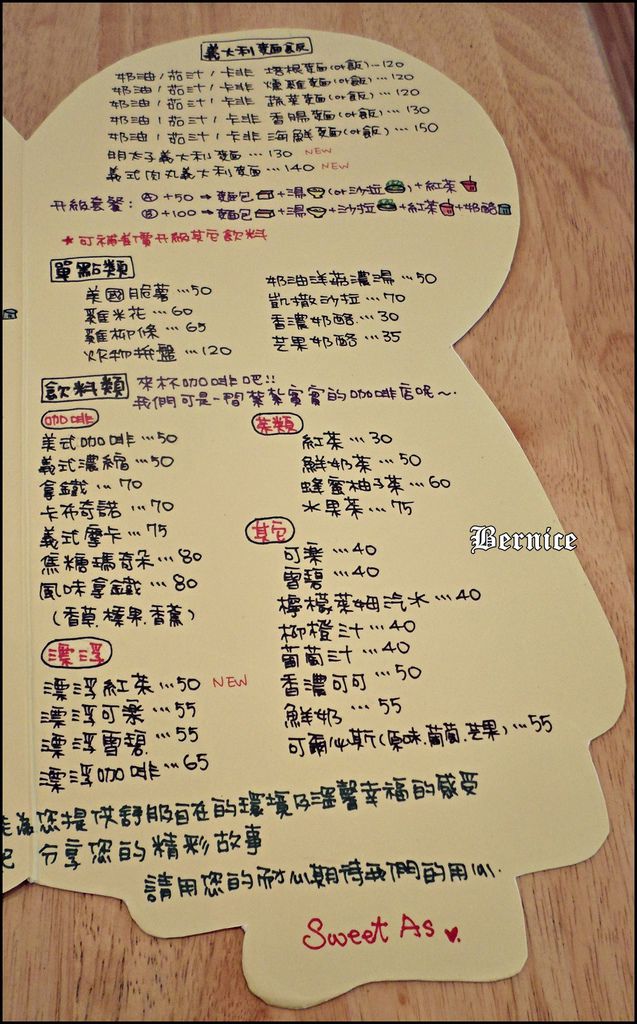 義大利麵飯
奶油/茄汁/卡非 培根麵(or飯)...120
奶油/茄汁/卡非 燻雞麵(or飯)...120
奶油/茄汁/卡非 蔬菜麵(or飯)...120
奶油/茄汁/卡非 香腸麵(or飯)...130
奶油/茄汁/卡非 海鮮麵(or飯)...150
明太子義大利麵...130 NEW
義式肉丸義大利麵...140 NEW
升級套餐: Ⓐ +50 → 麵包+湯(or沙拉)+紅茶
Ⓑ +100 → 麵包+湯+沙拉+紅茶+奶酪
★可補差價升級其它飲料
單點類
美國脆薯...50
雞米花...60
雞柳條...65
炸物拼盤...120
奶油洋菇濃湯...50
凱撒沙拉...70
香濃奶酪...30
芒果奶酪...35
飲料類 來杯咖啡吧!!
我們可是一間紮紮實實的咖啡店呢~.
咖啡
美式咖啡...50
義式濃縮...50
拿鐵...70
卡布奇諾...70
義式摩卡...75
焦糖瑪奇朵...80
風味拿鐵...80
(香草.榛果.香蕉)
漂浮
漂浮紅茶...50 NEW
漂浮可樂...55
漂浮雪碧...55
漂浮咖啡...65
茶類
紅茶...30
鮮奶茶...50
蜂蜜柚子茶...60
水果茶...75
其它
可樂...40
雪碧...40
檸檬萊姆汽水...40
柳橙汁...40
葡萄汁...40
香濃可可...50
鮮奶...55
可爾必斯(原味.葡萄.芒果)...55
Bernice
為您提供舒服自在的環境及溫馨幸福的感受
分享您的精彩故事
請用您的耐心期待我們的用心.
Sweet As ♥.